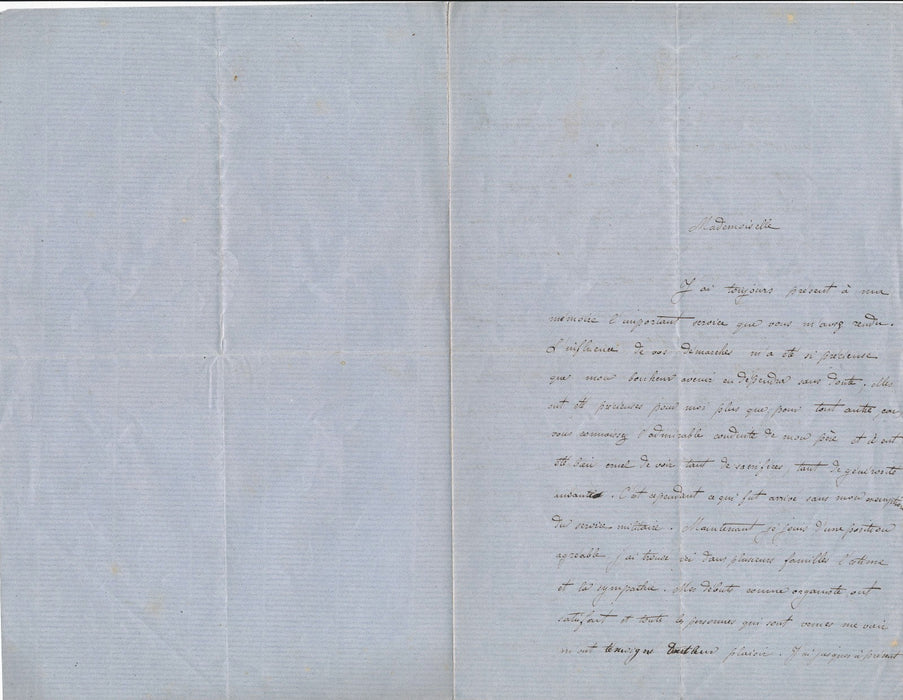 Mademoiselle
J'ai toujours présent à ma
mémoire l'important service que vous m'avez rendu.
L'influence de vos démarches m'a été si précieuse
que mon bonheur avenir en dépendra sans doute. Elles
ont été précieuses pour moi plus que pour tout autre car
vous connaissez l'admirable conduite de mon père et il eut
été bien cruel de voir tant de sacrifices, tant de générosité
anéantis. C'est cependant ce qui fut arrivé sans mon exemption
du service militaire. Maintenant je jouis d'une position
agréable j'ai trouvé ici dans plusieurs familles l'estime
et la sympathie. Mes débuts comme organiste ont
satisfait et toute les personnes qui sont venues me voir
m'ont témoigné tout leur plaisir. J'ai jusques à présent